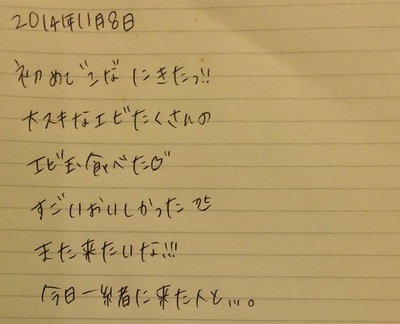 2014年11月8日
初めて"こな"にきたっ!!
大スキなエビたくさんの
エビ玉食べた♡"
すごいおいしかった
また来たいな!!!
今日一緒に来た人と...。